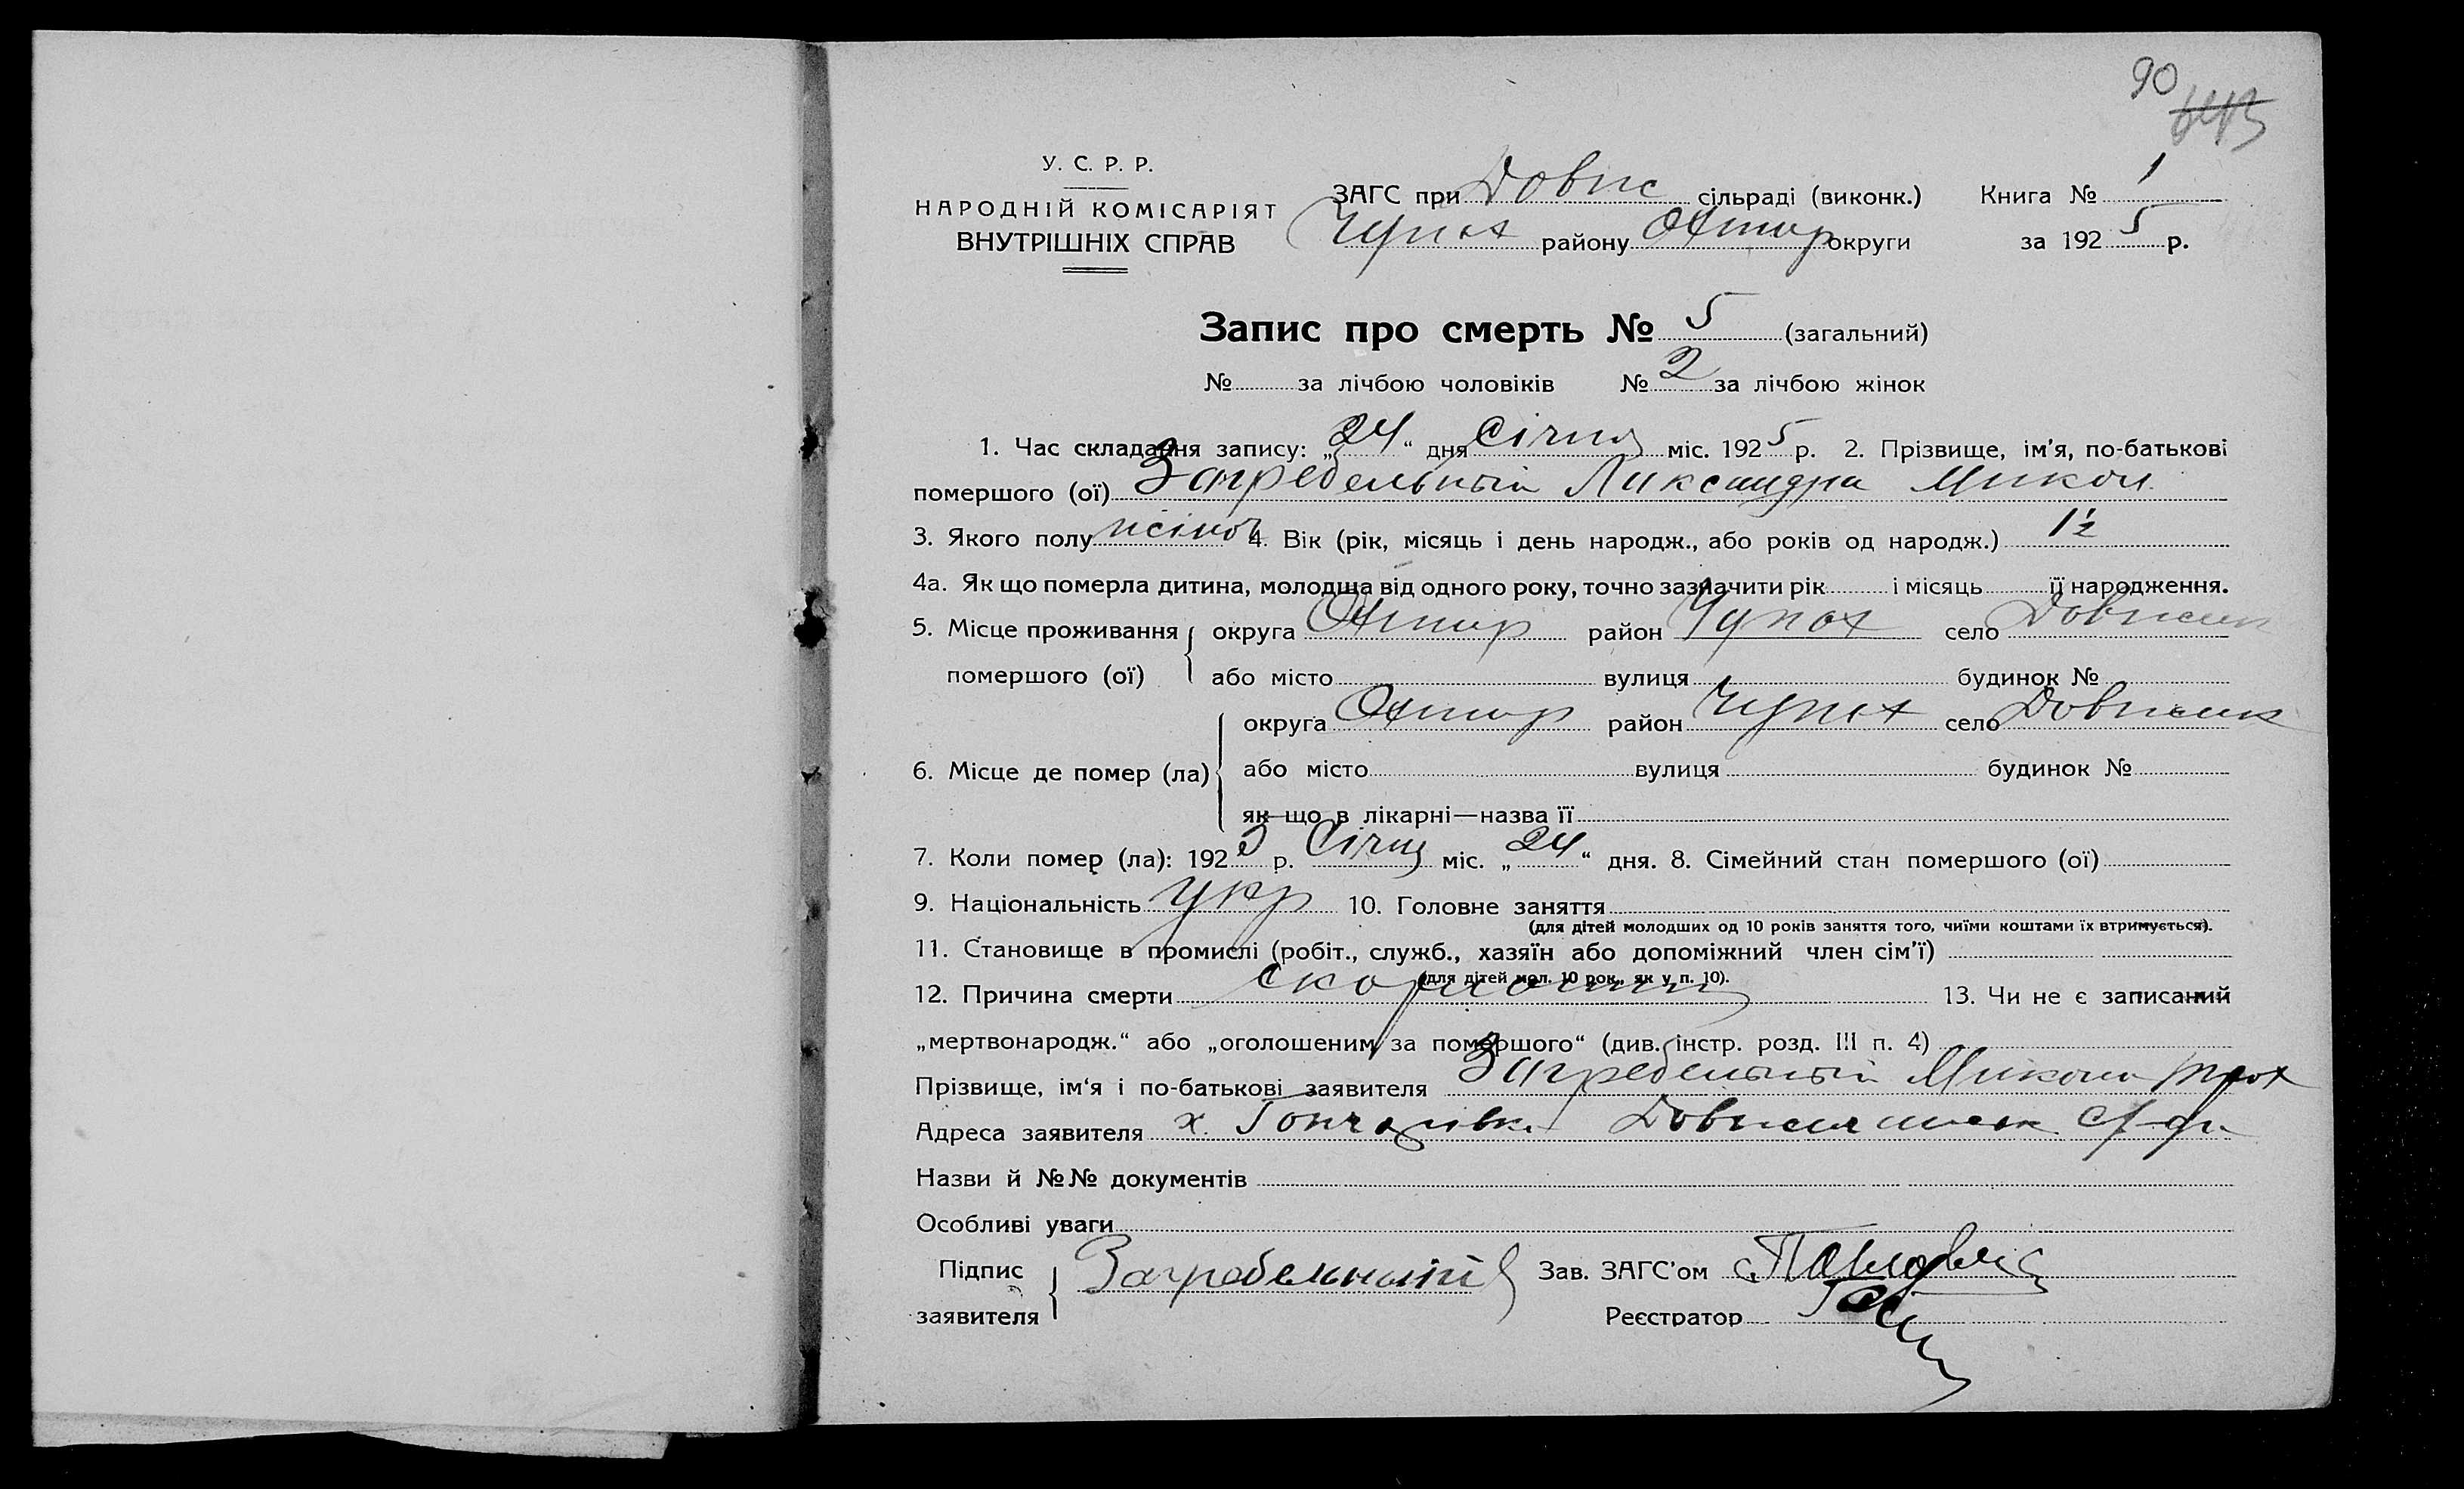 90
У. С. Р. Р.
НАРОДНІЙ КОМІСАРІЯТ
ВНУТРІШНІХ СПРАВ
ЗАГС при Довж сільраді (виконк.) Книга № 1
Чупах району Охтир округи за 1925 р.
Запис про смерть № 5 (загальний)
№ за лічбою чоловіків № 2 за лічбою жінок
1. Час складання запису: „24“ дня Січня міс. 1925 р. 2. Прізвище, ім'я, по-батькові
помершого (ої) Загребельный Ликсандра Микол
3. Якого полу жіноч 4. Вік (рік, місяць і день народж., або років од народж.) 1½
4а. Як що померла дитина, молодща від одного року, точно зазначити рік і місяць її народження.
5. Місце проживання округа Охтир район Чупах село Довжик
помершого (ої) або місто вулиця будинок №
округа Охтир район Чупах село Довжик
6. Місце де помер (ла) або місто вулиця будинок №
як що в лікарні—назва її
7. Коли помер (ла): 1925 р. Січня міс. „24“ дня. 8. Сімейний стан помершого (ої)
9. Національність укр 10. Головне заняття
(для дітей молодших од 10 років заняття того, чиїми коштами їх втримується).
11. Становище в промислі (робіт., служб., хазяїн або допоміжний член сім'ї)
(для дітей мол. 10 рок., як у п. 10).
12. Причина смерти скорлотина 13. Чи не є записаний
„мертвонародж.“ або „оголошеним за помершого“ (див. інстр. розд. III п. 4)
Прізвище, ім'я і по-батькові заявителя Загребельный Микола Трох
Адреса заявителя х. Гончарівка с/ради
Назви й №№ документів
Особливі уваги
Підпис Загребельний Зав. ЗАГС'ом
заявителя Реєстратор